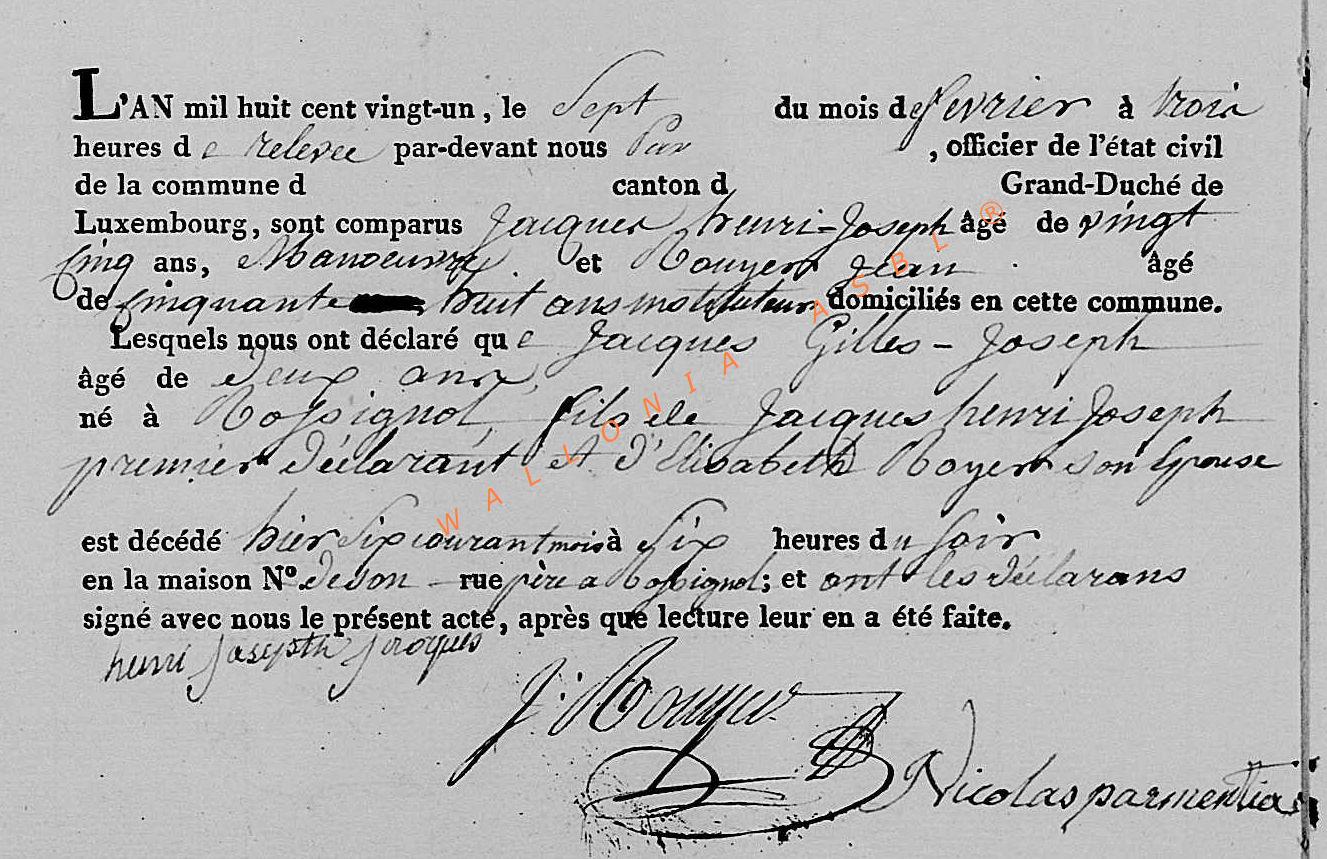 L'AN mil huit cent vingt-un, le Sept du mois de fevrier à trois
heures de relevée par-devant nous , officier de l'état civil
de la commune d canton d Grand-Duché de
Luxembourg, sont comparus Jacques henri-Joseph âgé de vingt
Cinq ans, Manoeuvre et Rouyer Jean âgé
de Cinquante huit ans instituteur domiciliés en cette commune.
Lesquels nous ont déclaré que Jacques Gilles-Joseph
âgé de deux ans,
né à Rossignol, fils de Jacques henri Joseph
premier déclarant et d'Elisabeth Royer son Epouse
est décédé hier Six courant mois à Six heures du Soir
en la maison N° de son rue père a Rossignol; et ont les déclarans
signé avec nous le présent acte, après que lecture leur en a été faite.
henri Josepth Jacques
J. Rouyer
Nicolas parmentier
WALLONIA ASBL ®